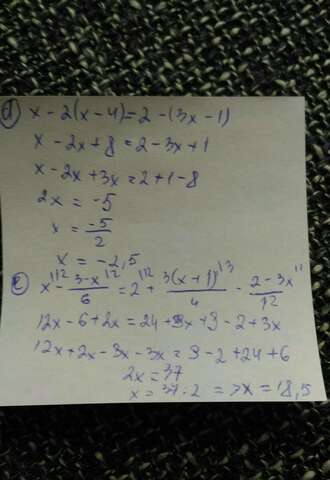 d) x - 2(x - 4) = 2 - (3x - 1)
x - 2x + 8 = 2 - 3x + 1
x - 2x + 3x = 2 + 1 - 8
2x = -5
x = -5/2
x = -2,5
e) x - (3-x)/6 = 2 + 3(x+1)/4 - (2-3x)/12
12x - 6 + 2x = 24 + 9x + 9 - 2 + 3x
12x + 2x - 9x - 3x = 9 - 2 + 24 + 6
2x = 37
x = 37 : 2 => x = 18,5